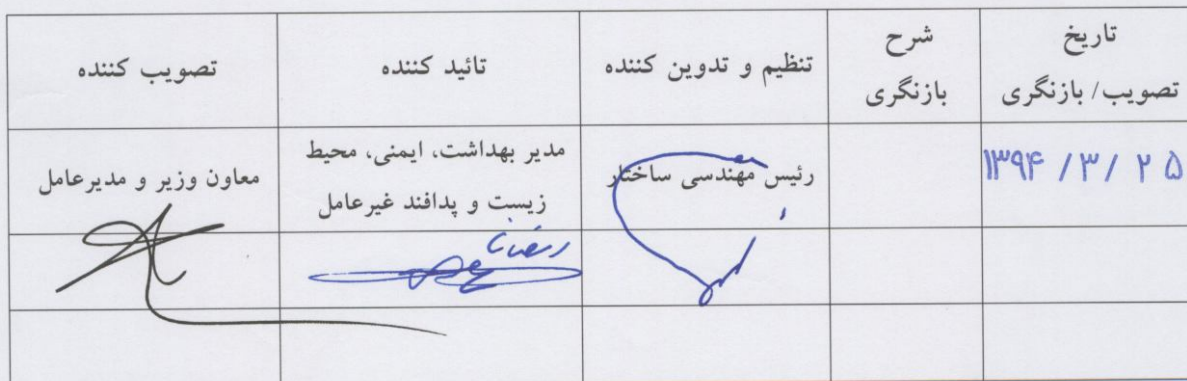 تاریخ
تصویب/ بازنگری
شرح
بازنگری
تنظیم و تدوین کننده
تائید کننده
تصویب کننده
۱۳۹۴ /۳/ ۲۵
رئیس مهندسی ساختار
مدیر بهداشت، ایمنی، محیط
زیست و پدافند غیرعامل
معاون وزیر و مدیرعامل